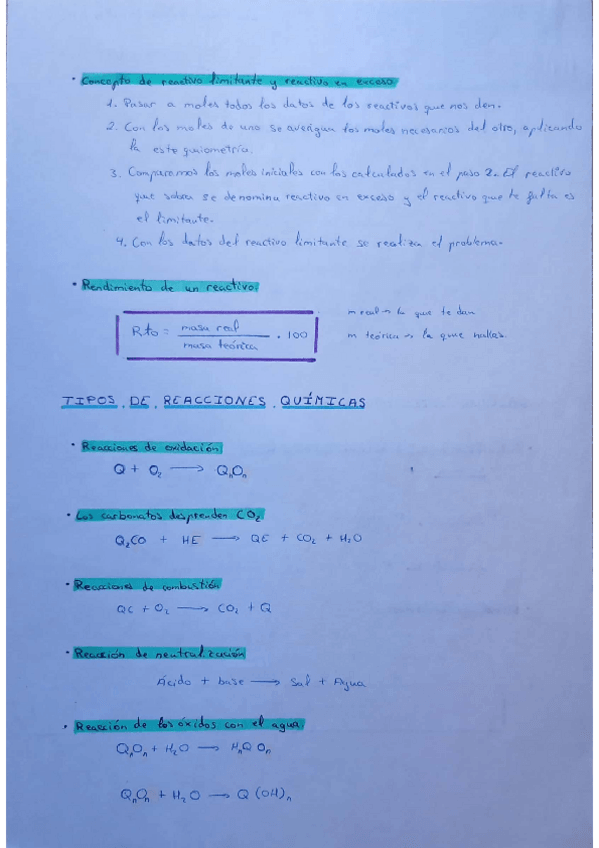 · Concepto de reactivo limitante y reactivo en exceso
1. Pasar a moles todos los datos de los reactivos que nos den.
2. Con los moles de uno se averigua los moles necesarios del otro, aplicando
la estequiometría.
3. Comparemos los moles iniciales con los calculados en el paso 2. El reactivo
que sobra se denomina reactivo en exceso y el reactivo que te falta es
el limitante.
4. Con los datos del reactivo limitante se realiza el problema.
· Rendimiento de un reactivo:
Rto = masa real / masa teórica · 100
m real → la que te dan
m teórica → la que hallas.
TIPOS DE REACCIONES QUÍMICAS
· Reacciones de oxidación
Q + O₂ → QₙOₙ
· Los carbonatos desprenden CO₂
Q₂CO + HE → QE + CO₂ + H₂O
· Reacciones de combustión
QC + O₂ → CO₂ + Q
· Reacción de neutralización
Ácido + base → Sal + Agua
· Reacción de los óxidos con el agua
QₙOₙ + H₂O → HₙQOₙ
QₙOₙ + H₂O → Q(OH)ₙ